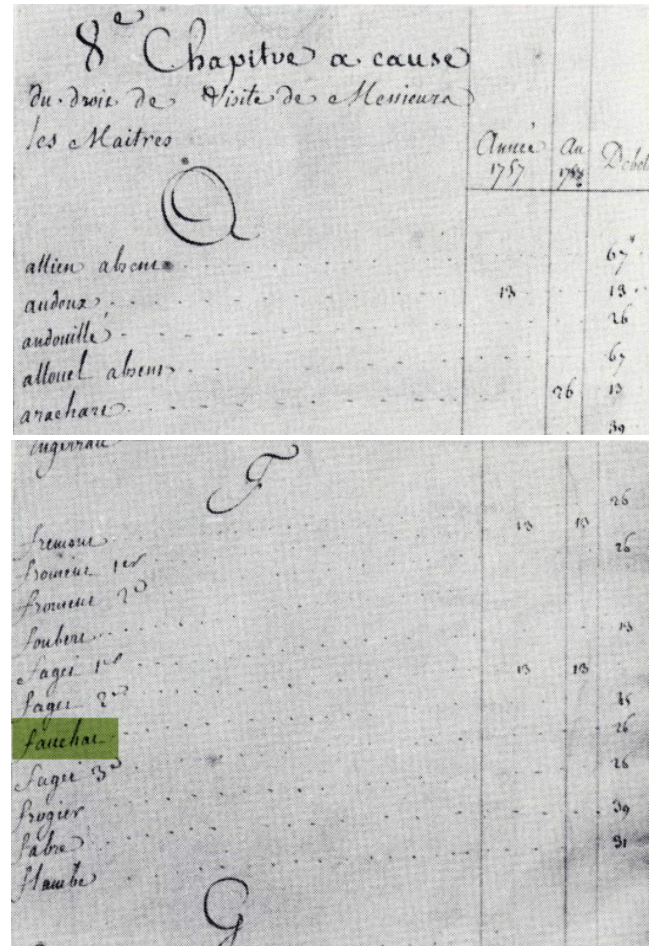 8e Chapitre a cause
du droit de Visite de Messieurs
les Maitres
Année 1757 An Debet
A
attien absent 67
audoux 13 13
andouillé 26
allouel absent 67
arachart 26 13
39
F
26
fremont 13 13
froment 1er 26
froment 2d
foubert
fager 1er 13
fager 2d 13 13
fauchar
fager 3e 26
frogier 26
fabre 39
flambe 31
G